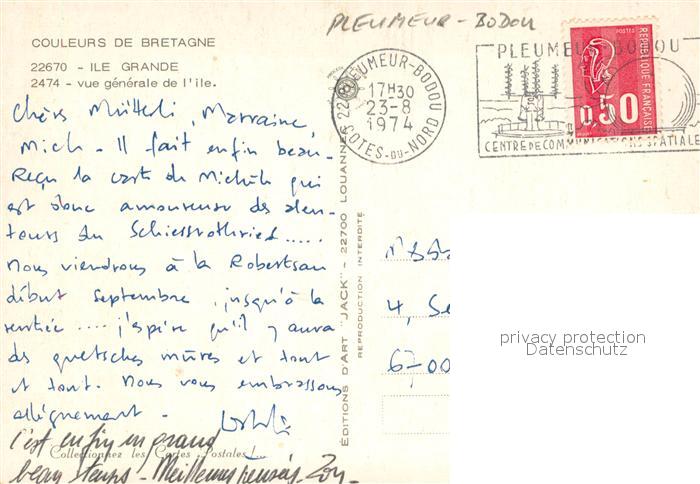 PLEUMEUR-BODOU
COULEURS DE BRETAGNE
22670 - ILE GRANDE
2474 - vue générale de l'ile.
22 PLEUMEUR-BODOU
17H30
23-8
1974
COTES-DU-NORD
PLEUMEUR-BODOU
CENTRE DE COMMUNICATIONS SPATIALES
POSTES
0,50
REPUBLIQUE FRANÇAISE
Chères Mütterli, Marraine,
Mich - Il fait enfin beau -
Reçu la carte de Michèle qui
est donc amoureuse des alen-
tours du Schiessrothried.....
Nous viendrons à la Robertsau
début septembre, jusqu'à la
rentrée .... j'espère qu'il y aura
des quetsches mûres et tout
et tout. Nous vous embrassons
allégrement.
c'est enfin un grand
beau temps - Meilleures pensées.
Collectionnez les Cartes Postales
EDITIONS D'ART "JACK" - 22700 LOUANNEC
REPRODUCTION INTERDITE
4, Se
67-00
privacy protection
Datenschutz